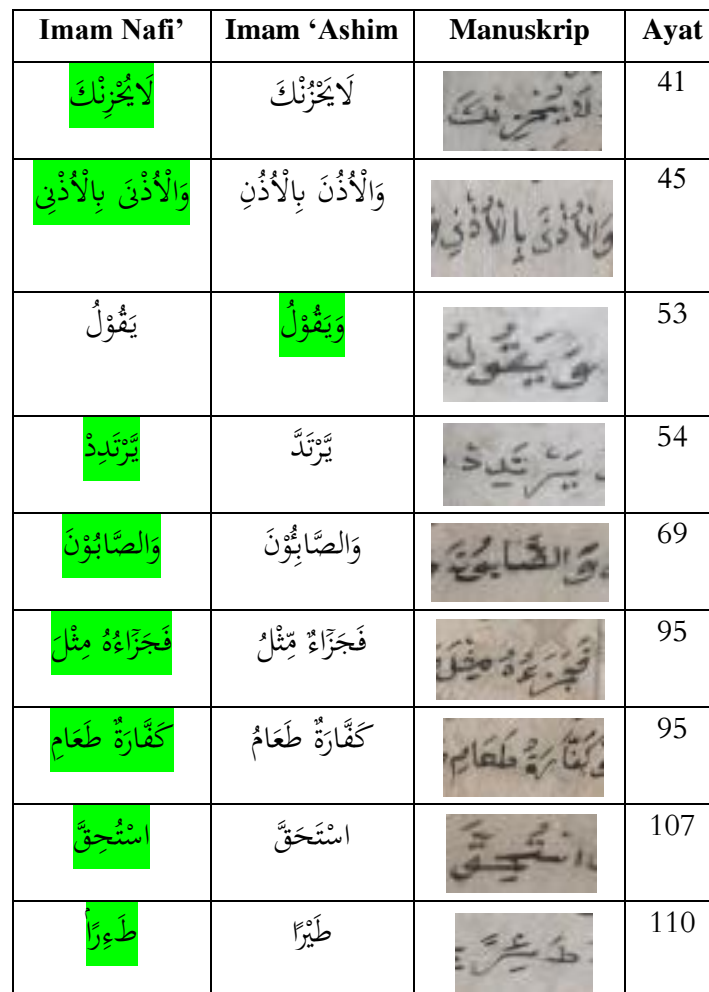 Imam Nafi’ Imam ‘Ashim Manuskrip Ayat
لَايُحْزِنْكَ لَايَحْزُنْكَ لَايُحْزِنكَ 41
وَالْأُذْنَ بِالْأُذْنِ وَالْأُذُنَ بِالْأُذُنِ وَالْأُذْنَ بِالْأُذْنِ 45
يَقُوْلُ وَيَقُوْلُ وَيَقُولُ 53
يَّرْتَدِدْ يَّرْتَدَّ يَّرْتَدِدْ 54
وَالصَّابُوْنَ وَالصَّابِئُوْنَ وَالصَّابُونَ 69
فَجَزَٓاءُهُ مِثْلَ فَجَزَٓاءٌ مِّثْلُ فَجَزَءُهُ مِثْلَ 95
كَفَّارَةٌ طَعَامِ كَفَّارَةٌ طَعَامُ وكَفَّارَةُ طَعَامِ 95
اسْتُحِقَّ اسْتَحَقَّ اسْتُحِقَّ 107
طَءِرًا طَيْرًا طَءِرًا 110